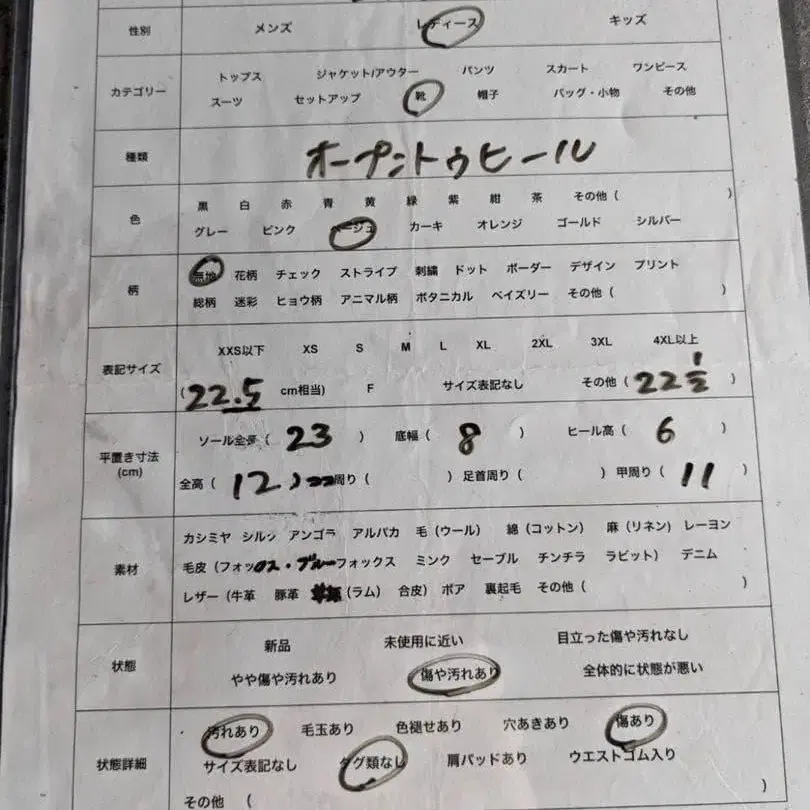 性別 メンズ レディース キッズ
カテゴリー トップス ジャケット/アウター パンツ スカート ワンピース
スーツ セットアップ 靴 帽子 バッグ・小物 その他
種類 オープントゥヒール
色 黒 白 赤 青 黄 緑 紫 紺 茶 その他 ( )
グレー ピンク ベージュ カーキ オレンジ ゴールド シルバー
柄 無地 花柄 チェック ストライプ 刺繍 ドット ボーダー デザイン プリント
総柄 迷彩 ヒョウ柄 アニマル柄 ボタニカル ペイズリー その他 ( )
表記サイズ XXS以下 XS S M L XL 2XL 3XL 4XL以上
(22.5 cm相当) F サイズ表記なし その他 (22 1/2)
平置き寸法 (cm) ソール全長 (23) 底幅 (8) ヒール高 (6)
全高 (12) 周り ( ) 足首周り ( ) 甲周り (11)
素材 カシミヤ シルク アンゴラ アルパカ 毛 (ウール) 綿 (コットン) 麻 (リネン) レーヨン
毛皮 (フォックス・ブルーフォックス ミンク セーブル チンチラ ラビット) デニム
レザー (牛革 豚革 (ラム) 合皮) ボア 裏起毛 その他 ( )
状態 新品 未使用に近い 目立った傷や汚れなし
やや傷や汚れあり 傷や汚れあり 全体的に状態が悪い
状態詳細 汚れあり 毛玉あり 色褪せあり 穴あきあり 傷あり
サイズ表記なし タグ類なし 肩パッドあり ウエストゴム入り
その他 ( )